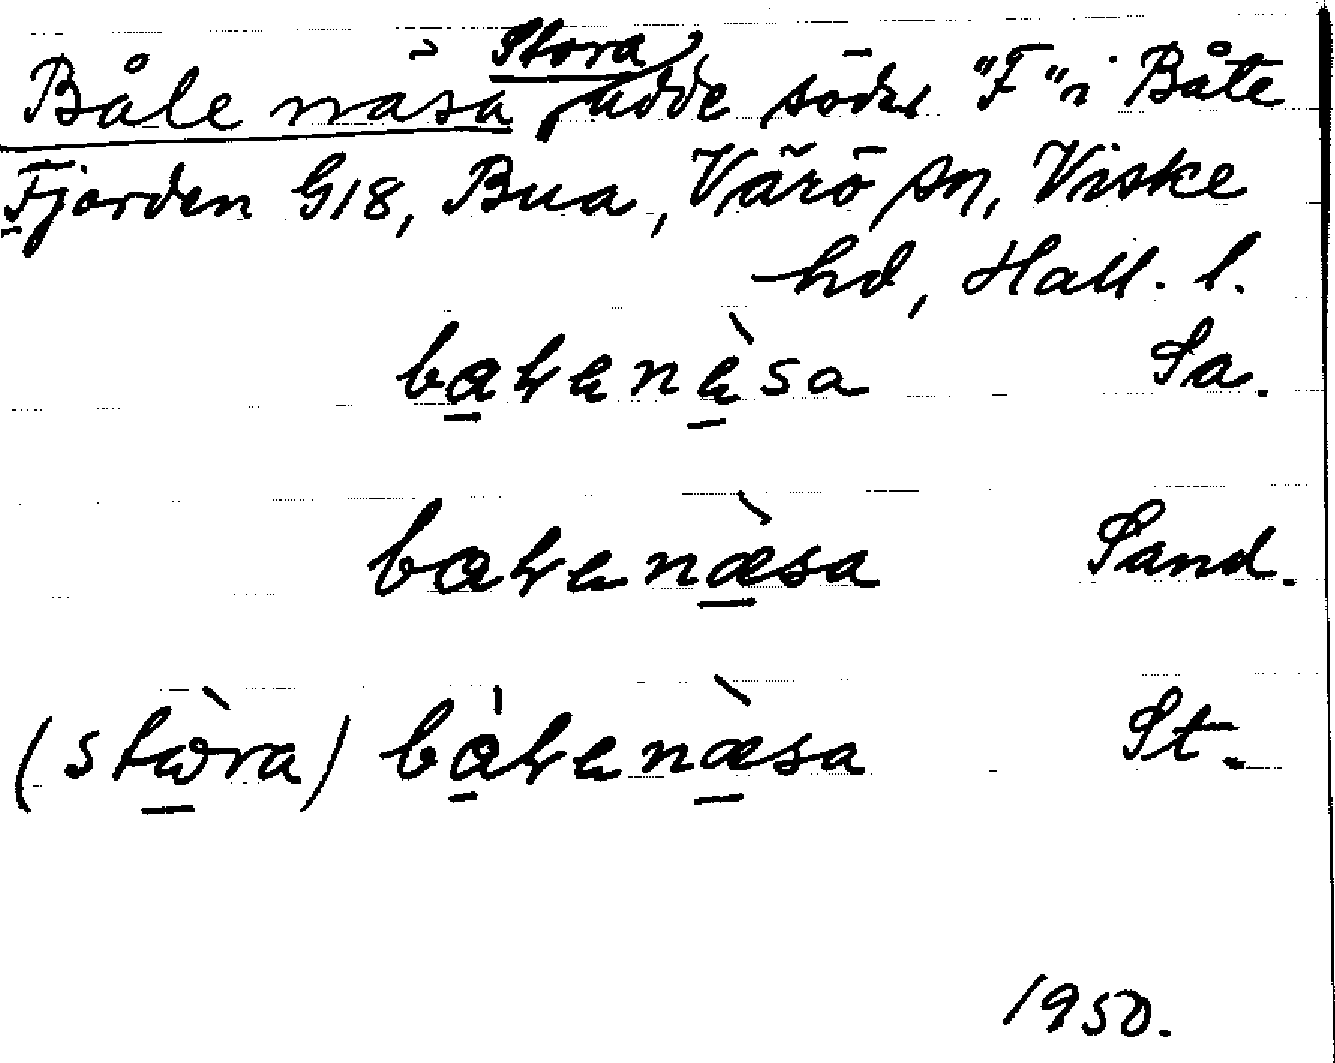 Båle näsa Stora udde söder "F" i Båte
Fjorden G18, Bua, Värö sn, Viske
hd, Hall. l.
baɬenèsa Sa.
baɬenæ̀sa Sand.
(stòra) bàɬenæ̀sa St.
1950.